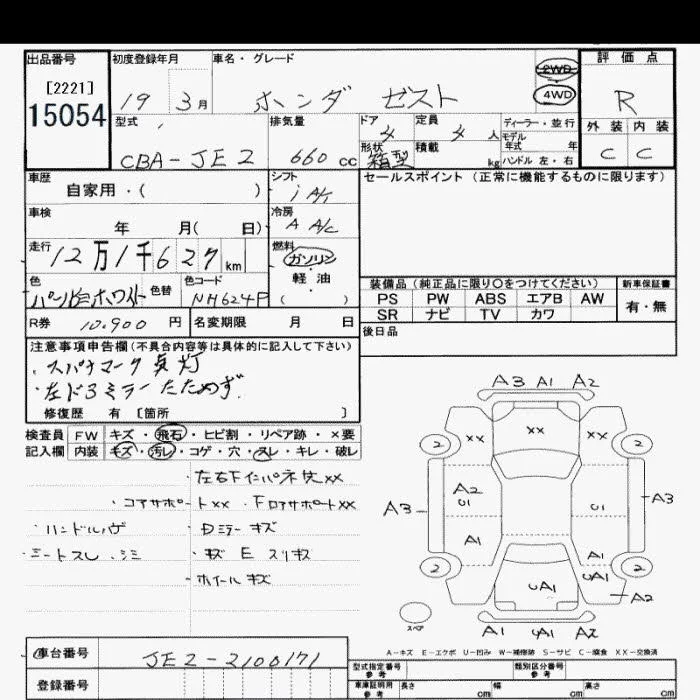 出品番号 初度登録年月 車名・グレード 2WD 評価点
[2221] 19 3月 ホンダ ゼスト 4WD R
15054 型式 排気量 ドア 定員 人 ディーラー・並行 外装 内装
CBA-JE2 660 cc 形状 箱型 積載 kg モデル年式 年 ハンドル 左・右 C C
車歴 自家用・( ) シフト i A/T セールスポイント(正常に機能するものに限ります)
車検 年 月( 日) 冷房 A A/C
走行 12万1千627 km 燃料 ガソリン
色 色替 色コード NH624P 軽油 ( )
装備品(純正品に限り〇をつけてください) 新車保証書
PS PW ABS エアB AW 有・無
SR ナビ TV カワ
R券 10.900 円 名変期限 月 日 後日品
注意事項申告欄(不具合内容等は具体的に記入して下さい)
・スパナマーク点灯
・左ドアミラーたためず.
修復歴 有 [箇所 ]
検査員 FW キズ・飛石・ヒビ割・リペア跡・×要
記入欄 内装 キズ・汚レ・コゲ・穴・スレ・キレ・破レ
コアサポートXX
・ハンドルハゲ ・Dミラーキズ
・シートスレ・シミ
・ホイールキズ
A3 A1 A2
XX XX XX
2 2
A3 A2 U1 U1 A3
A1 A1
2 UA1 UA1 2
A2
スペア
A1 UA1 A2
A-キズ E-エクボ U-凹み W-補修跡 S-サビ C-腐食 XX-交換済
車台番号 JE2-2100171
登録番号
型式指定番号 参考 類別区分番号 参考
車庫証明用 参考 長さ cm 幅 cm 高さ cm